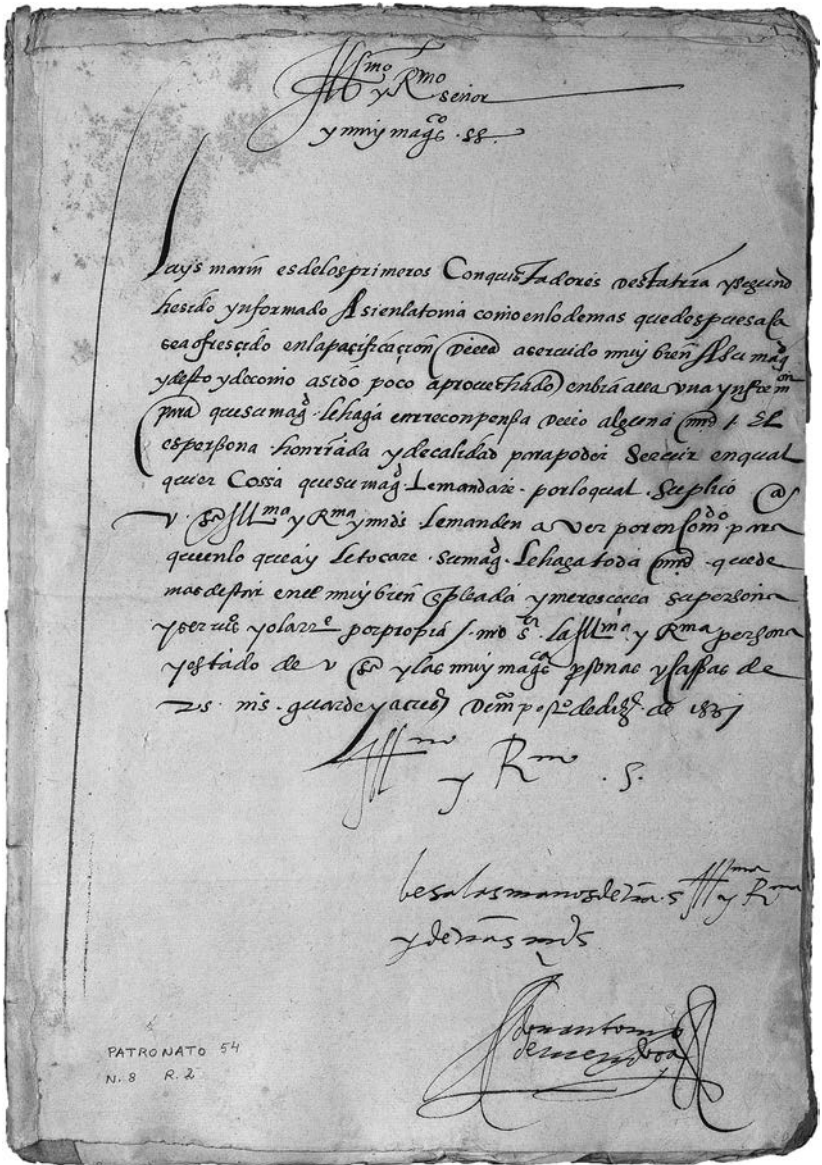 Illmo y Rmo señor
y muy magcos. ss.
Luys marin es delos primeros Conquistadores desta trra y segund
he sido ynformado Asi en la toma como en lo demas que despues aca
se a ofrescido en la pacificacion della a seruido muy bien A su magd
y desto y de como a sido poco aprouechado enbia alla vna ynformon
para que su magd. le haga en rreconpensa dello alguna mrd / El
es persona honrrada y de calidad para poder Seruir en qual
quier Cossa que su magd. Le mandare. por lo qual. Suplico a
v. sa Illma y Rma y mrds. Le manden aver por encomdo para
que en lo que ay le tocare. su magd. Le haga toda mrd. que de
mas de star en el muy bien enpleada y meresce la su persona
y seruios yo la rre por propria /. nro sr. la Illma y Rma persona
y estado de v sa y las muy magcas psonas y cassas de
vs. ms. guarde y acresc De mexco po de dizre. de 1537
Illmo y Rmo. S.
besa las manos de vra. s Illma y Rma
y de vras mds
don antonio
de mendoça
PATRONATO 54
N. 8 R. 2